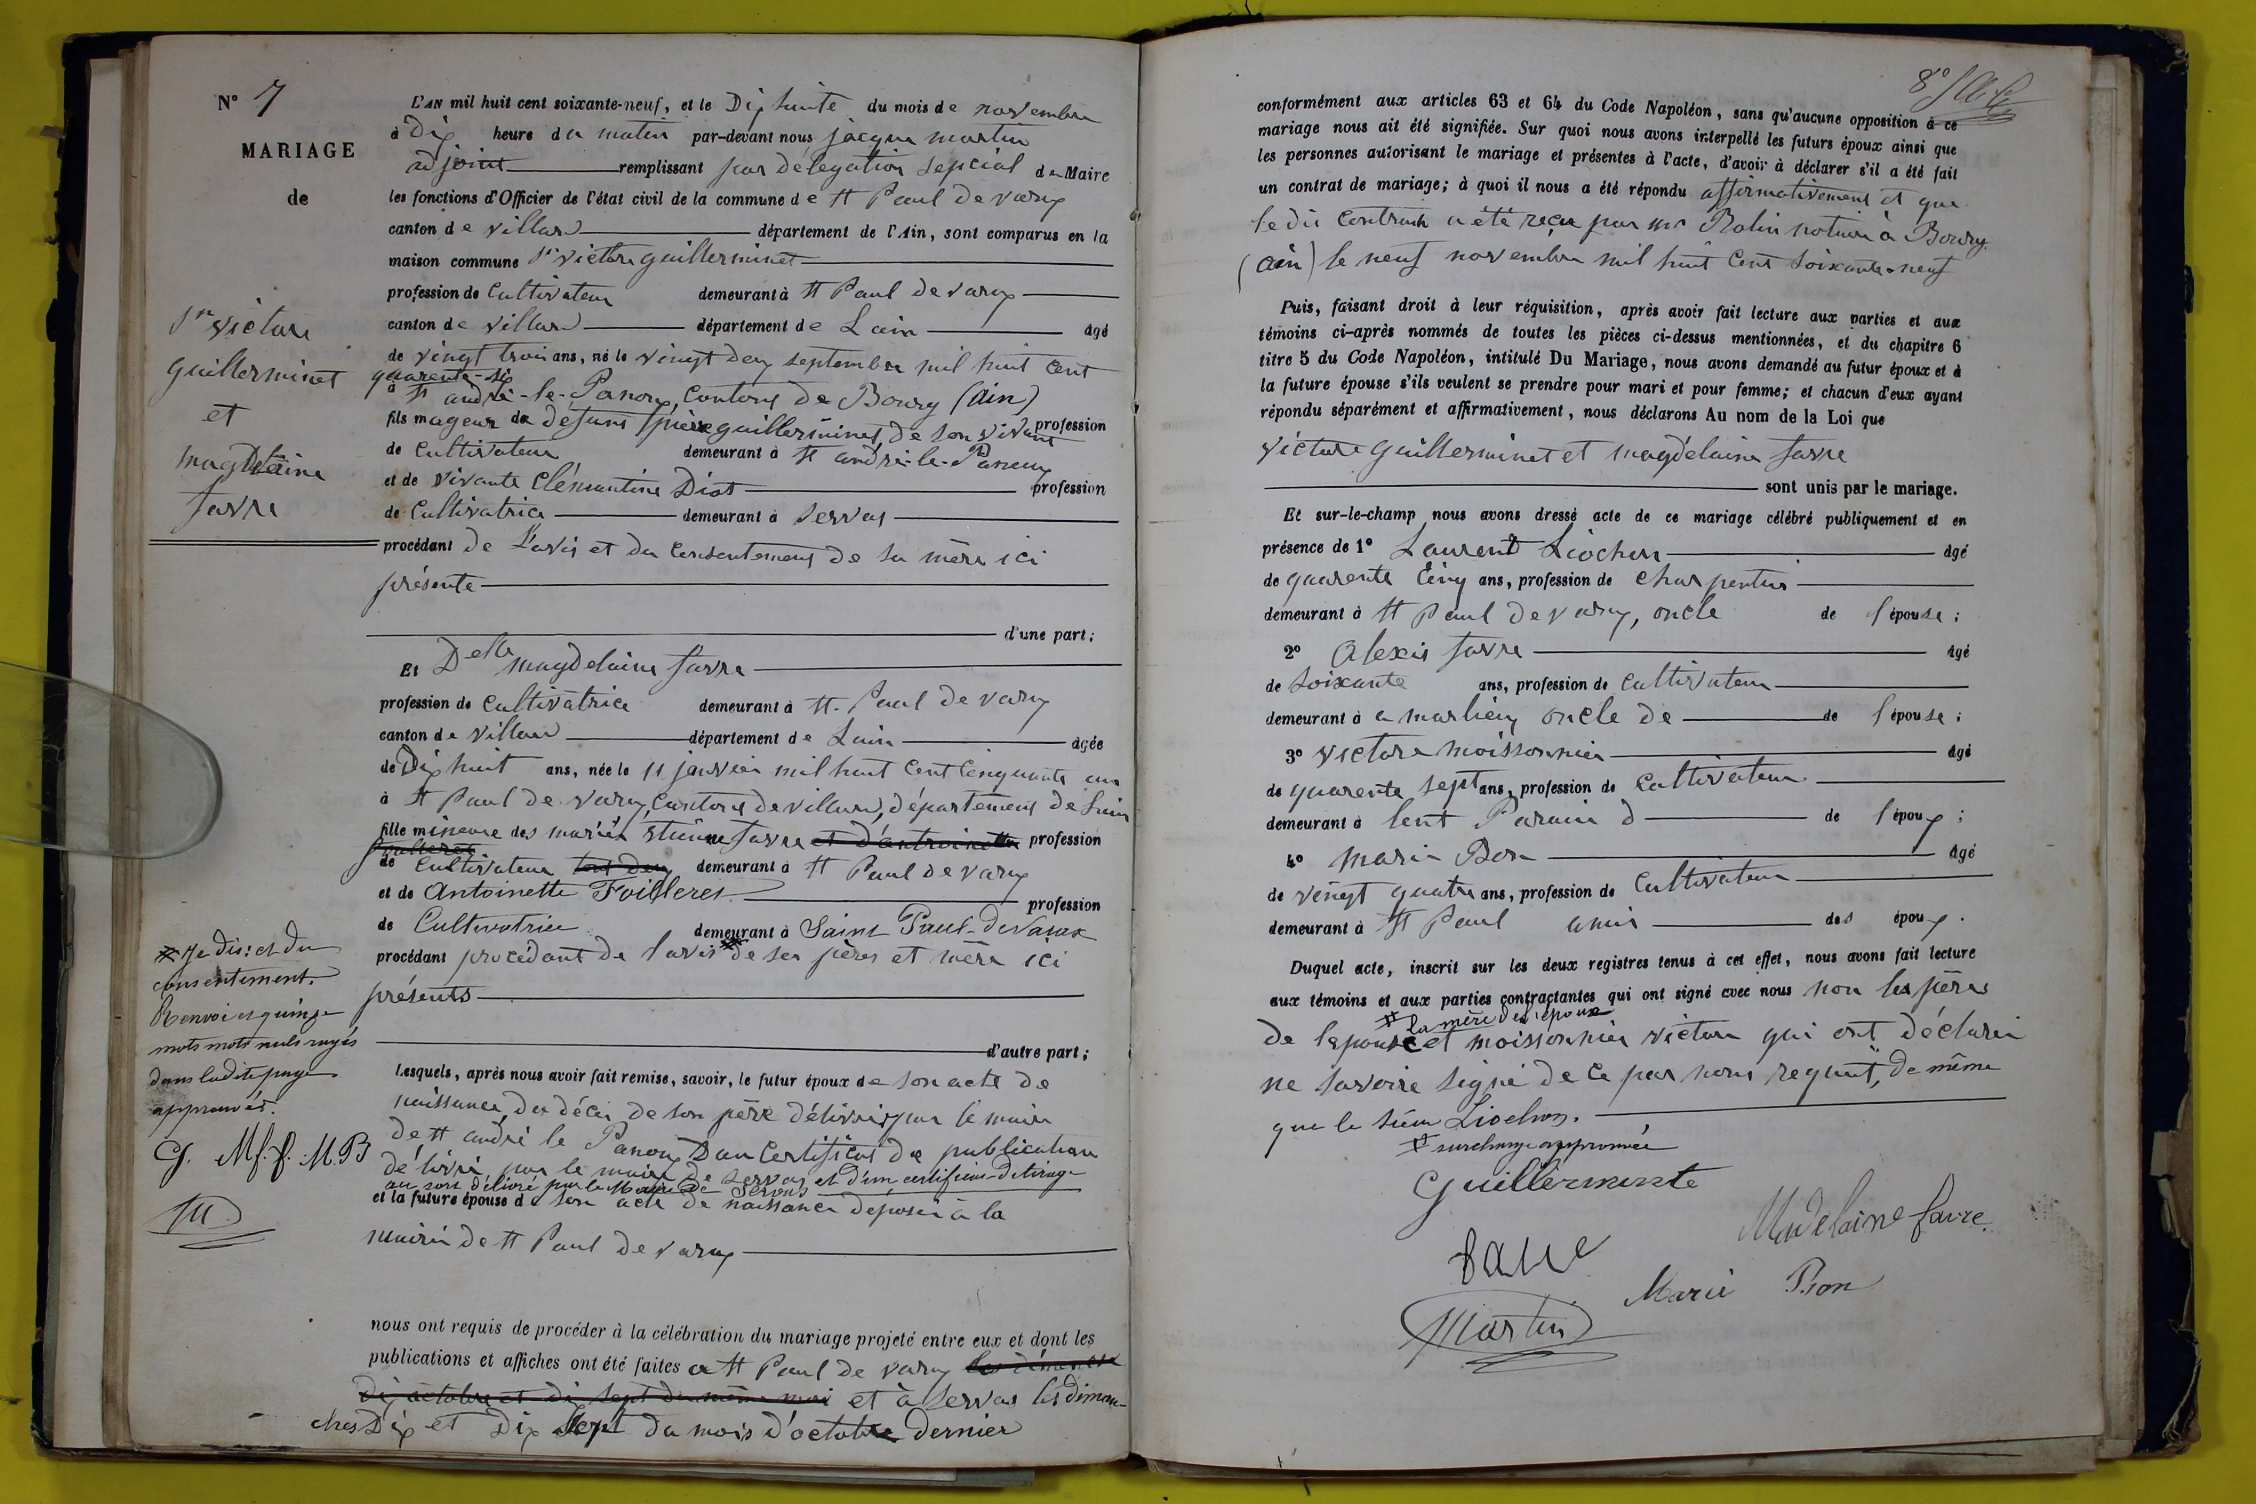 N° 7
MARIAGE
de
Sr victore
guillerminet
et
magdelaine
favre
L'AN mil huit cent soixante-neuf, et le Dix huite du mois de novembre
à Dix heure du matin par-devant nous jacque martin
adjoint remplissant par délegation sepcial du Maire
les fonctions d'Officier de l'état civil de la commune de St Paul de varax
canton de villard département de l'Ain, sont comparus en la
maison commune Sr victore guillerminet
profession de Cultivateur demeurant à St Paul de varax
canton de villard département de Lain âgé
de vingt trois ans, né le vingt deux septembre mil huit cent
quarente-six
à St andré-le-Panoux, Contons de Bourg (Ain)
fils mageur de défunt pière guillerminet, de son vivant profession
de Cultivateur demeurant à St andré-le-Paneux
et de vivante Clémantine Diot profession
de Cultivatrice demeurant à Servas
procédant de L'avis et du Consentement de sa mère ici
présente
d'une part;
Et Delle magdelaine favre
profession de Cultivatrice demeurant à St. Paul de varax
canton de villard département de Lain âgée
de Dix huit ans, née le 11 janvier mil huit Cent Cinquante un
à St Paul de varax, Cantons de villard, département de Lain
fille mineure des mariés étienne favre et d'antroinette profession
de Cultivateur tout deux demeurant à St Paul de varax
et de Antoinette Foilleret profession
de Cultivatrice demeurant à Saint Paul-de Varax
procédant procédant de l'avis de ses pères et mère ici
présents
d'autre part;
# Je dis: et du
consentement.
Renvoi et quinze
mots mots nuls rayés
dans ladite page
approuvés.
G. M f. f. M. B
M
Lesquels, après nous avoir fait remise, savoir, le futur époux de son acte de
naissance, du décès de son père délivrés par le maire
de St andré le Panoux D'un Certificat de publication
délivré par le maire de Servas et d'un certificat de tirage
au sort délivré par le Maire de Servas
et la future épouse de son acte de naissance déposer à la
mairie de St Paul de varax
nous ont requis de procéder à la célébration du mariage projeté entre eux et dont les
publications et affiches ont été faites a St Paul de varax les dimanche
dix octobre et dix sept du même mois et à Servas les diman-
ches Dix et Dix Sept du mois d'octobre dernier
8°
conformément aux articles 63 et 64 du Code Napoléon, sans qu'aucune opposition à ce
mariage nous ait été signifiée. Sur quoi nous avons interpellé les futurs époux ainsi que
les personnes autorisant le mariage et présentes à l'acte, d'avoir à déclarer s'il a été fait
un contrat de mariage; à quoi il nous a été répondu affirmativement et que
le dit Contrat a été reçu par mr Rolin notaire à Bourg
(ain) le neuf novembre mil huit Cent Soixante-neuf
Puis, faisant droit à leur réquisition, après avoir fait lecture aux parties et aux
témoins ci-après nommés de toutes les pièces ci-dessus mentionnées, et du chapitre 6
titre 5 du Code Napoléon, intitulé Du Mariage, nous avons demandé au futur époux et à
la future épouse s'ils veulent se prendre pour mari et pour femme; et chacun d'eux ayant
répondu séparément et affirmativement, nous déclarons Au nom de la Loi que
victore guillerminet et magdelaine favre
sont unis par le mariage.
Et sur-le-champ nous avons dressé acte de ce mariage célébré publiquement et en
présence de 1° Laurent Liochon âgé
de quarente Cinq ans, profession de Charpentier
demeurant à St Paul de varax, oncle de l'épouse;
2° Alexis favre âgé
de Soixante ans, profession de Cultivateur
demeurant à a marlieux oncle de de l'épouse;
3° victore moissonnier âgé
de quarente sept ans, profession de Cultivateur
demeurant à lent Parain d de l'époux;
4° marie Bon âgé
de vingt quatre ans, profession de Cultivateur
demeurant à St Paul amis des époux.
Duquel acte, inscrit sur les deux registres tenus à cet effet, nous avons fait lecture
aux témoins et aux parties contractantes qui ont signé avec nous non les pères
# la mère de l'époux
de lepouse et moissonnier victore qui ont déclarer
ne savoire signé de ce par nous requit, de même
que le sieur Liochon.
# surcharge approuvée
Guillerminte
Madelaine favre.
favre
Marie Bon
Martin